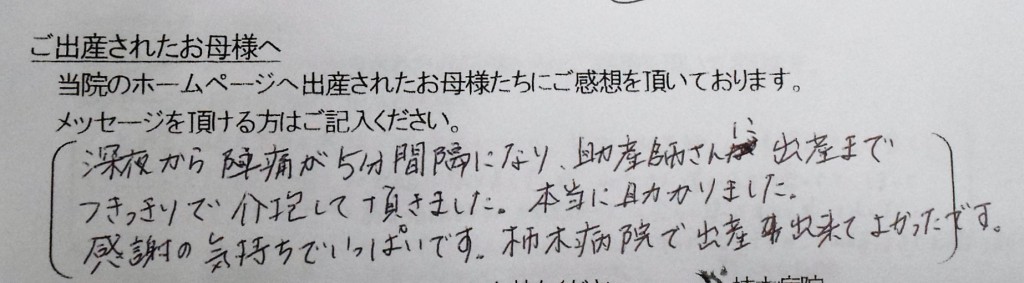 ご出産されたお母様へ
当院のホームページへ出産されたお母様たちにご感想を頂いております。
メッセージを頂ける方はご記入ください。
深夜から陣痛が5分間隔になり、助産師さんに出産まで
つきっきりで介抱して頂きました。本当に助かりました。
感謝の気持ちでいっぱいです。柿木病院で出産出来てよかったです。